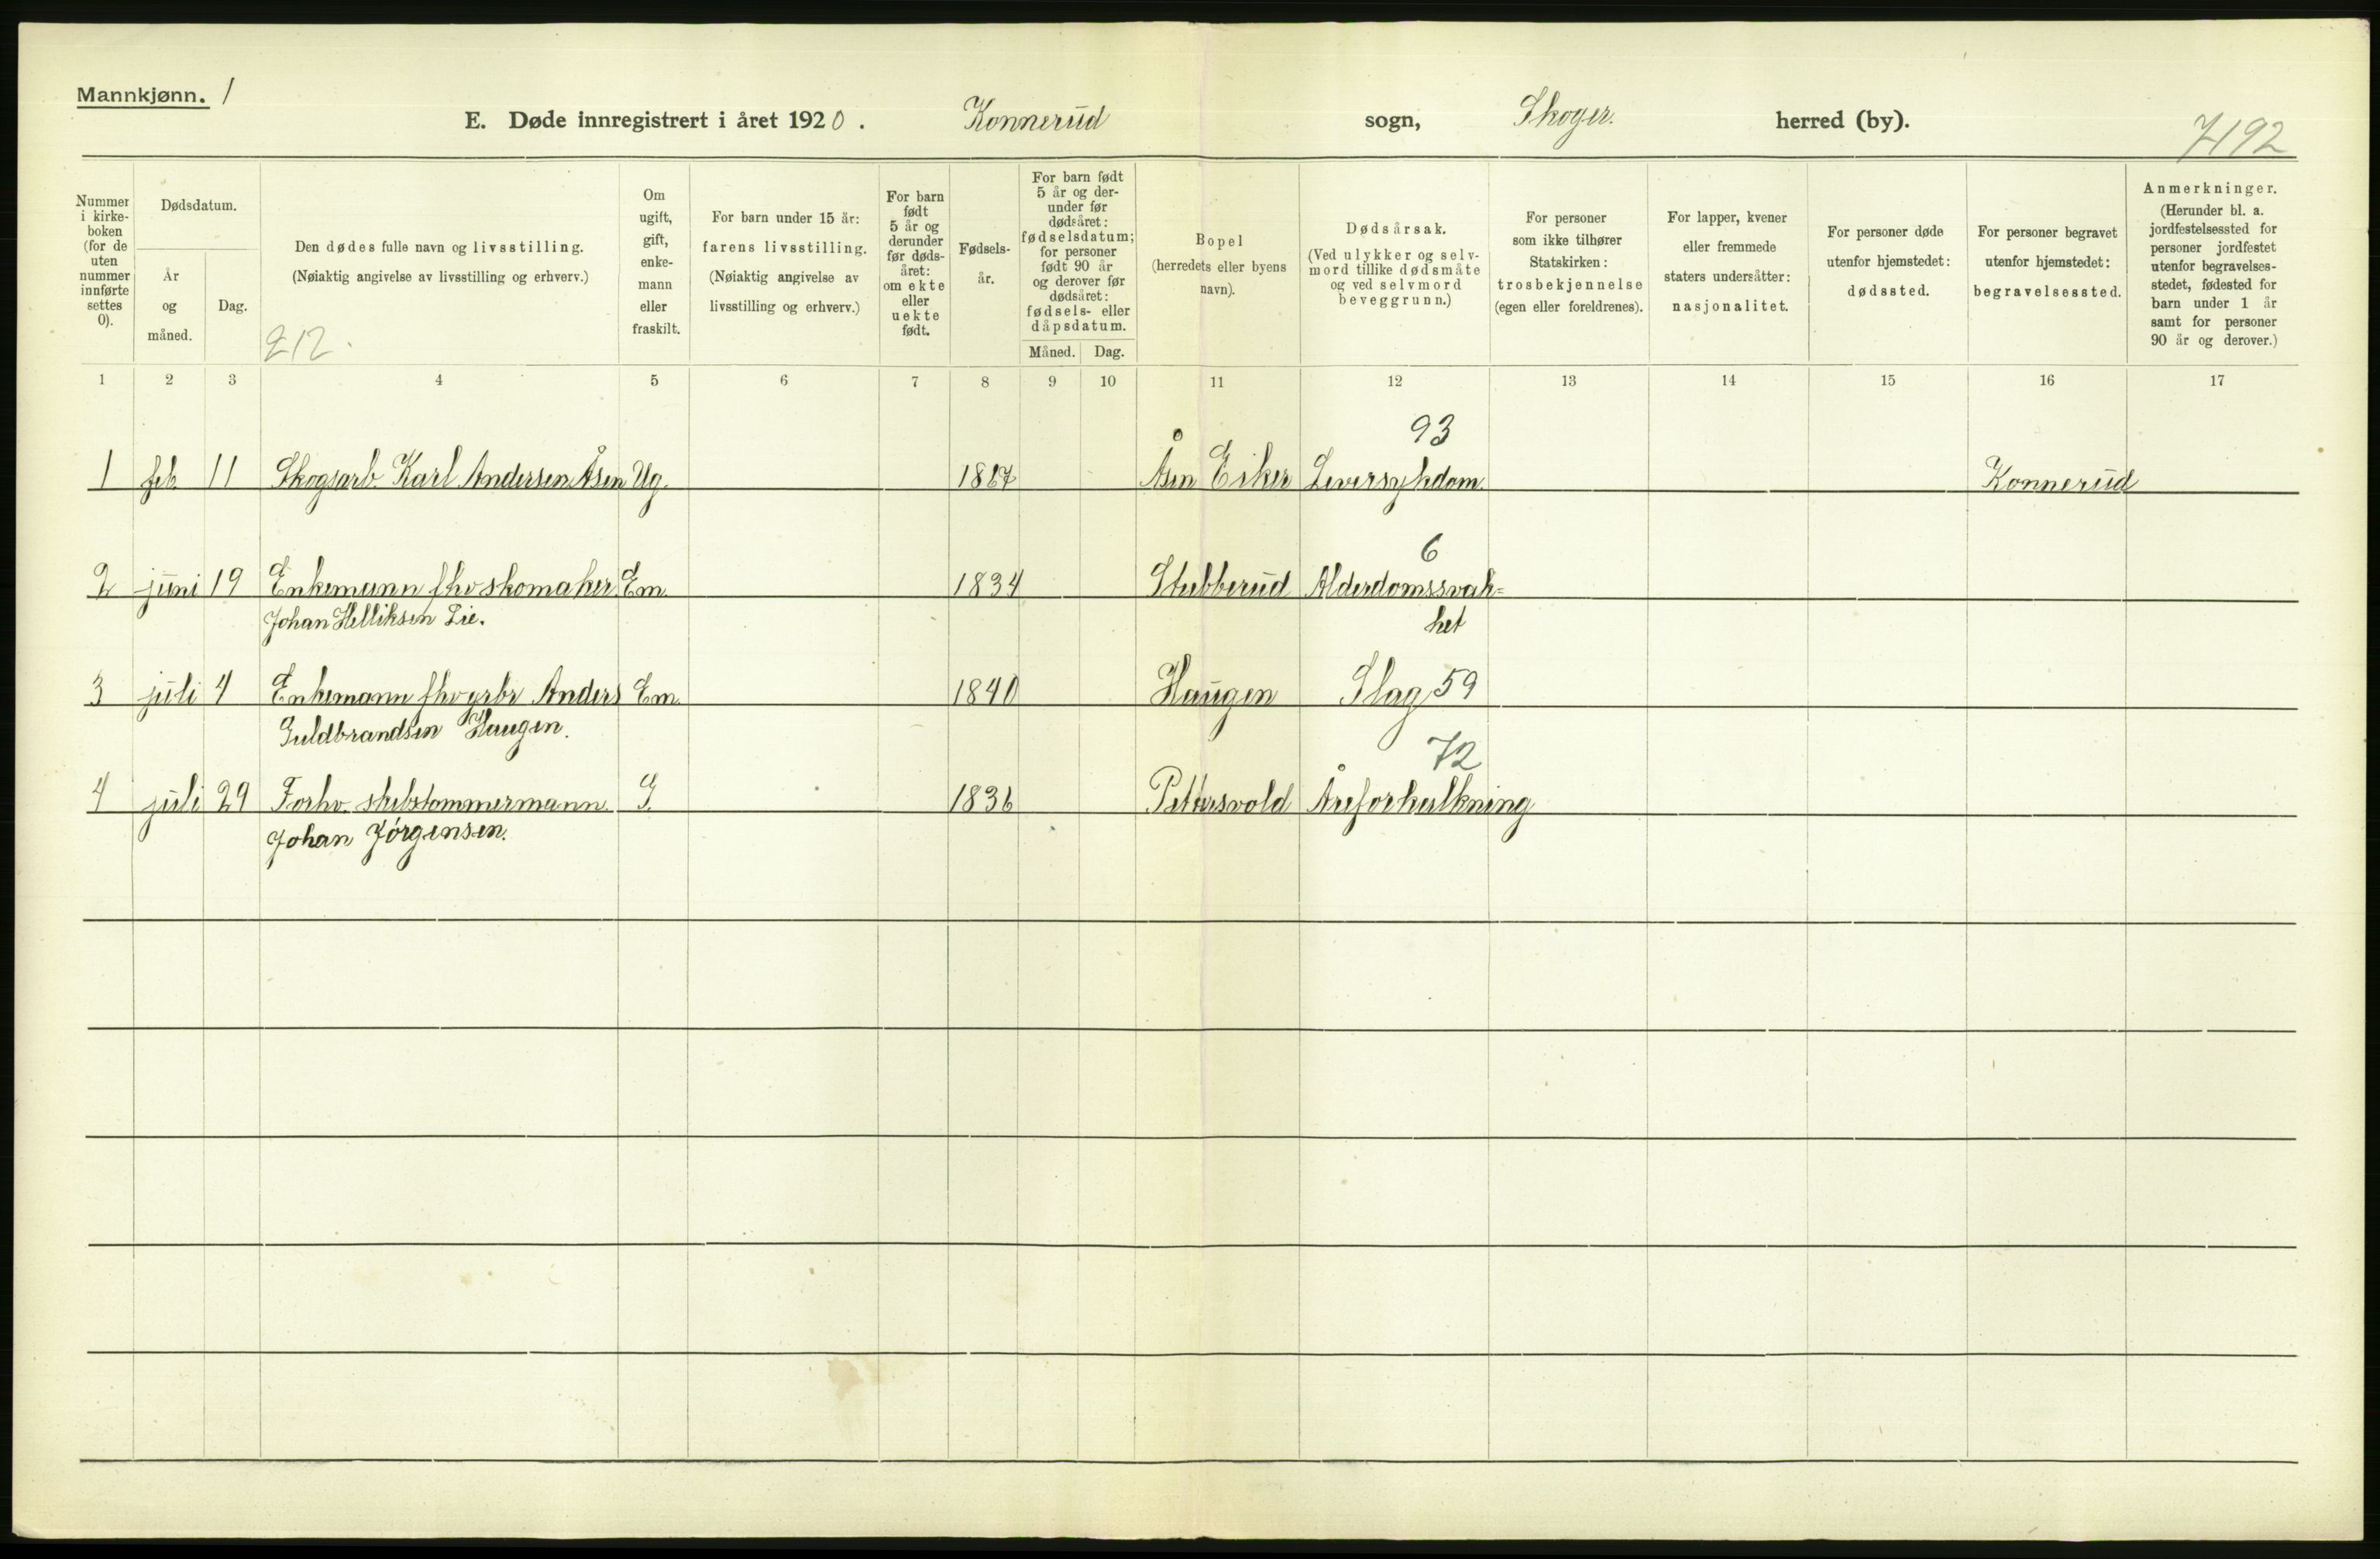 Mannkjønn. 1
E. Døde innregistrert i året 1920. Konnerud sogn, Skoger. herred (by).
7192
Nummer i kirke-boken (for de uten nummer innførte settes 0).
Dødsdatum.
År og måned.
Dag.
Den dødes fulle navn og livsstilling.
(Nøiaktig angivelse av livsstilling og erhverv.)
212.
Om ugift, gift, enke-mann eller fraskilt.
For barn under 15 år:
farens livsstilling.
(Nøiaktig angivelse av
livsstilling og erhverv.)
For barn født 5 år og derunder før døds-året: om ekte eller uekte født.
Fødsels-år.
For barn født 5 år og der-under før dødsåret: fødselsdatum; for personer født 90 år og derover før dødsåret: fødsels- eller dåpsdatum.
Måned. Dag.
Bopel
(herredets eller byens navn).
Dødsårsak.
(Ved ulykker og selv-mord tillike dødsmåte og ved selvmord beveggrunn.)
For personer som ikke tilhører Statskirken: trosbekjennelse (egen eller foreldrenes).
For lapper, kvener eller fremmede staters undersåtter: nasjonalitet.
For personer døde utenfor hjemstedet: dødssted.
For personer begravet utenfor hjemstedet: begravelsessted.
Anmerkninger.
(Herunder bl. a. jordfestelsessted for personer jordfestet utenfor begravelses-stedet, fødested for barn under 1 år samt for personer 90 år og derover.)
1 2 3 4 5 6 7 8 9 10 11 12 13 14 15 16 17
93
1 feb. 11 Skogsarb. Karl Andersen Åsen Ug. Åsen Eiker Leversykdom. Konnerud
6
2 juni 19 Enkemann fhv skomaker Em. 1834 Stubberud Alderdomssvak=
Johan Helliksen Lie. het
3 juli 4 Enkemann fhv grbr Anders Em. 1840 Haugen Slag 59
Guldbrandsen Haugen.
72
4 juli 29 Forhv. skibstømmermann. G. 1836 Pettersvold Åreforkalkning
Johan Jörgensen.